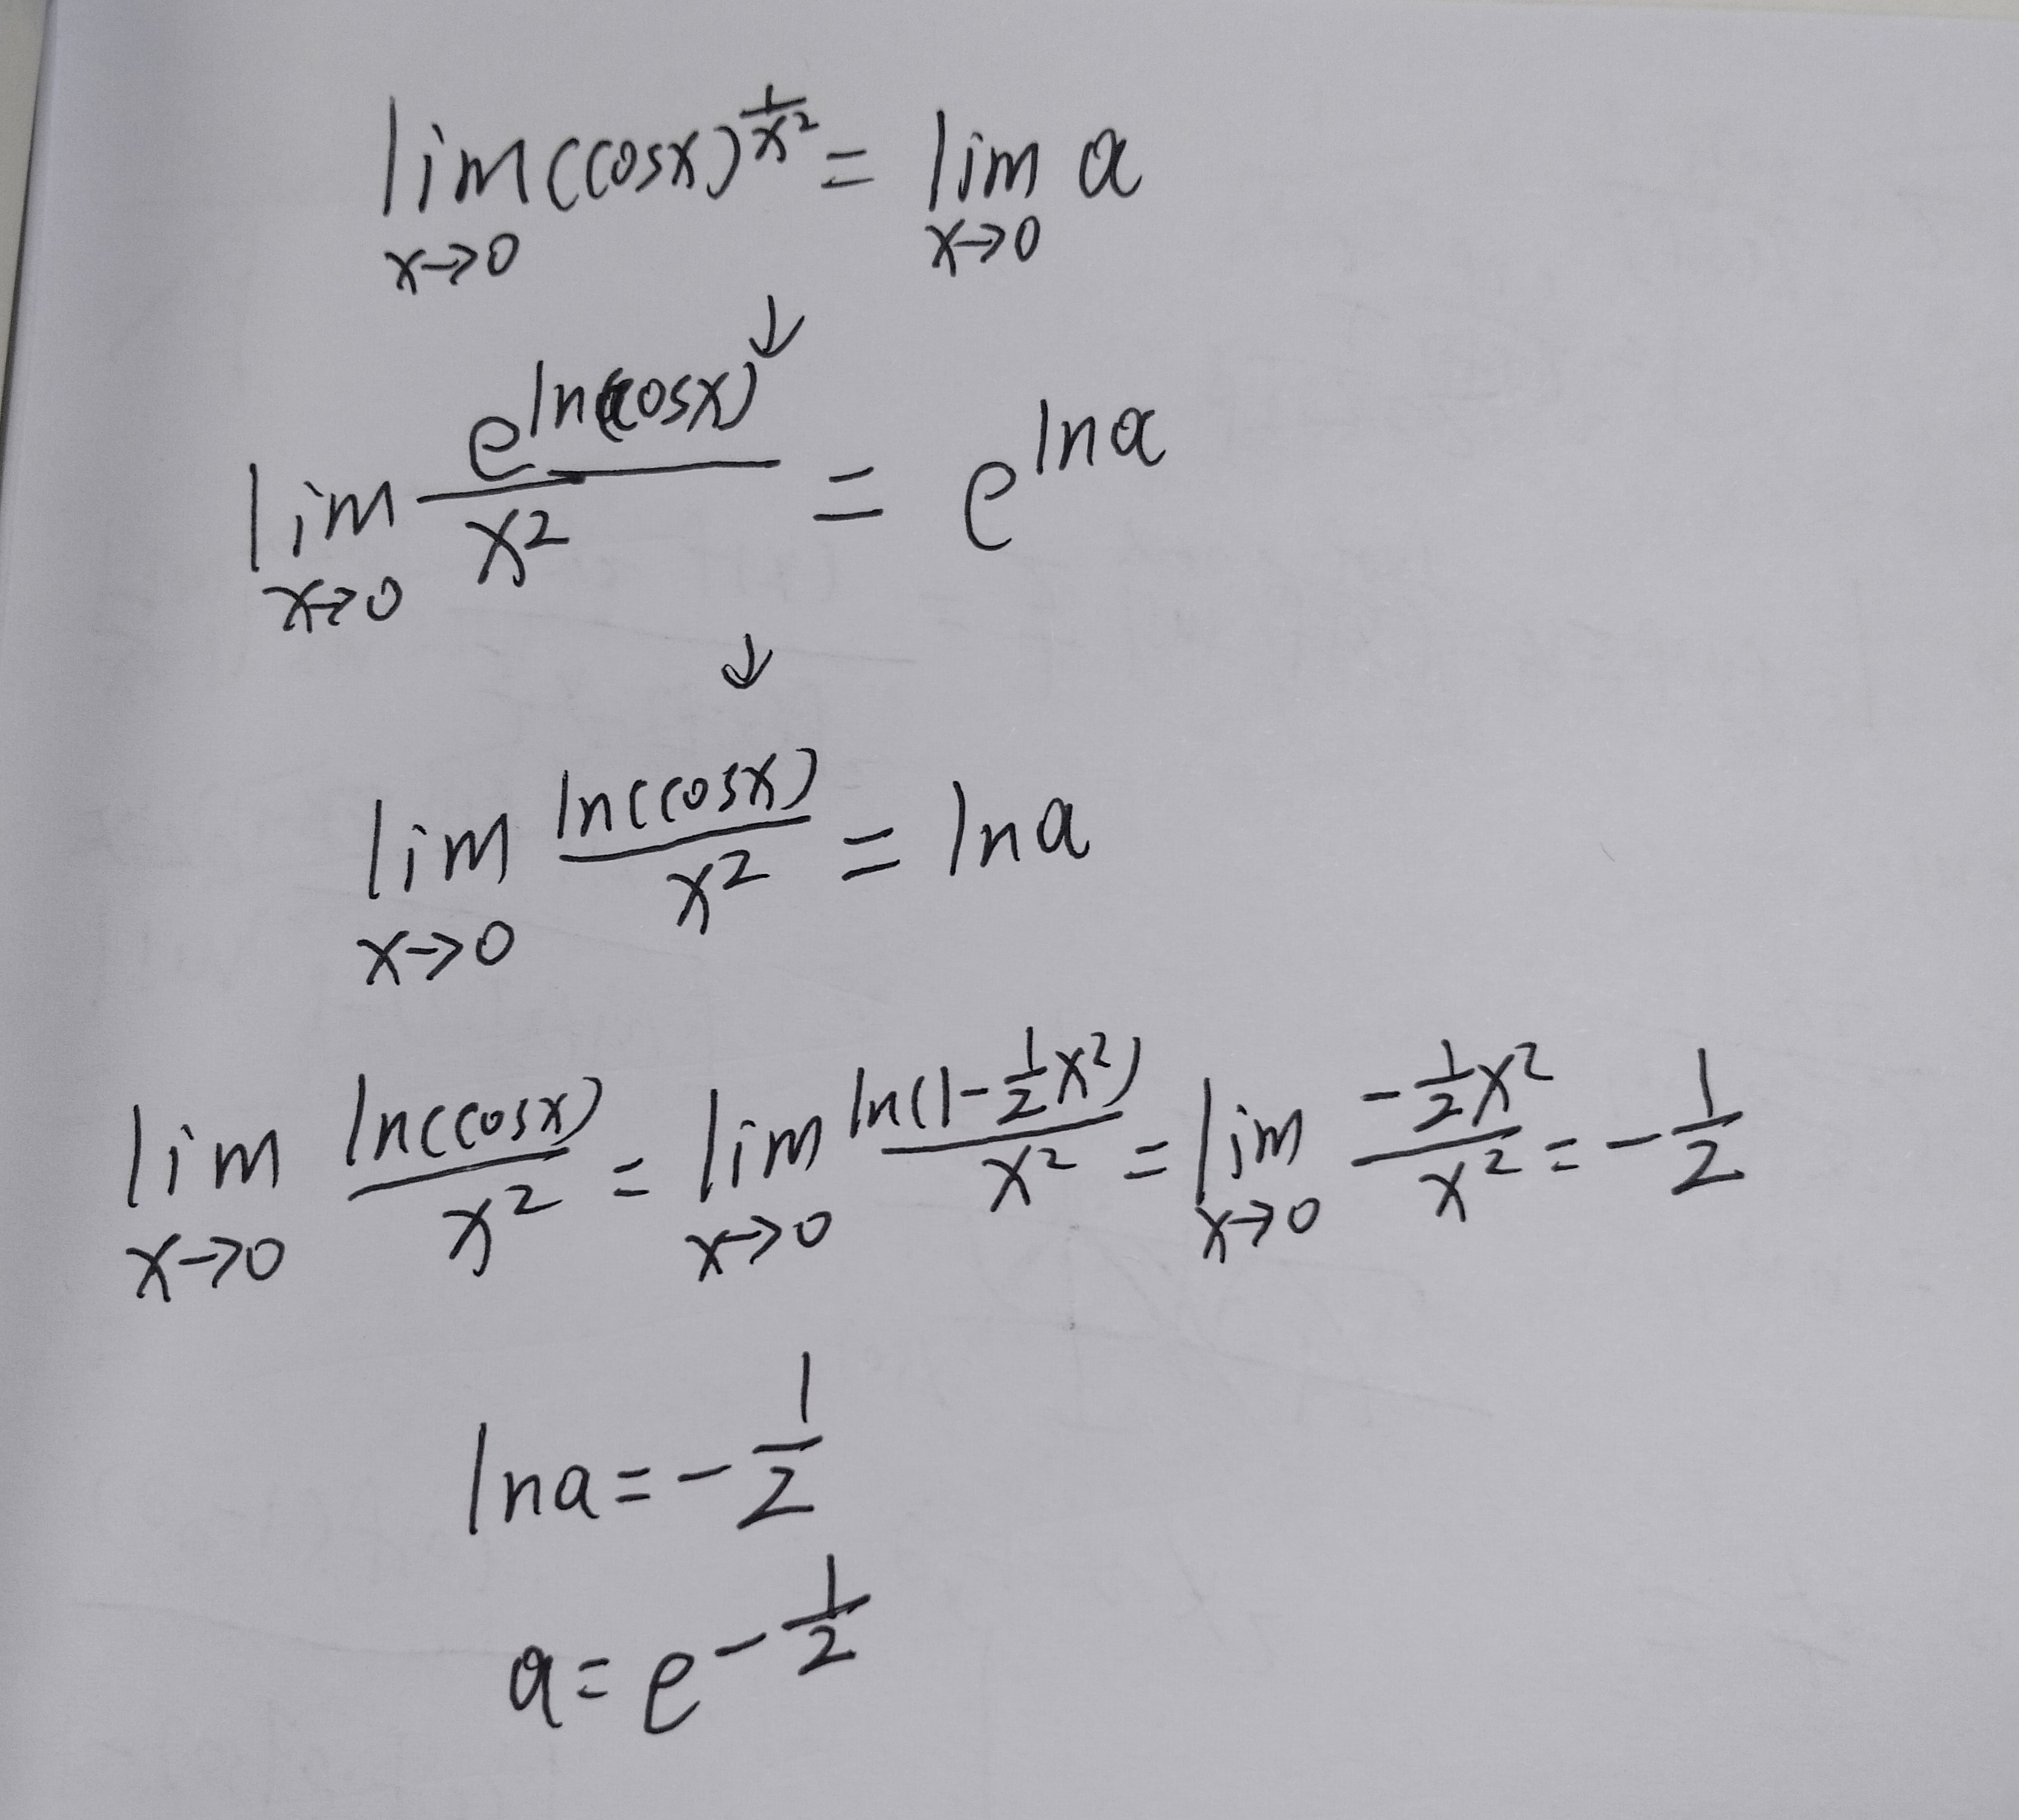 lim_{x→0} (cosx)^{1/x²} = lim_{x→0} a
↓
lim_{x→0} e^{ln(cosx)}/x² = e^{lna}
↓
lim_{x→0} ln(cosx)/x² = lna
lim_{x→0} ln(cosx)/x² = lim_{x→0} ln(1-½x²)/x² = lim_{x→0} -½x²/x² = -½
lna = -½
a = e^{-½}